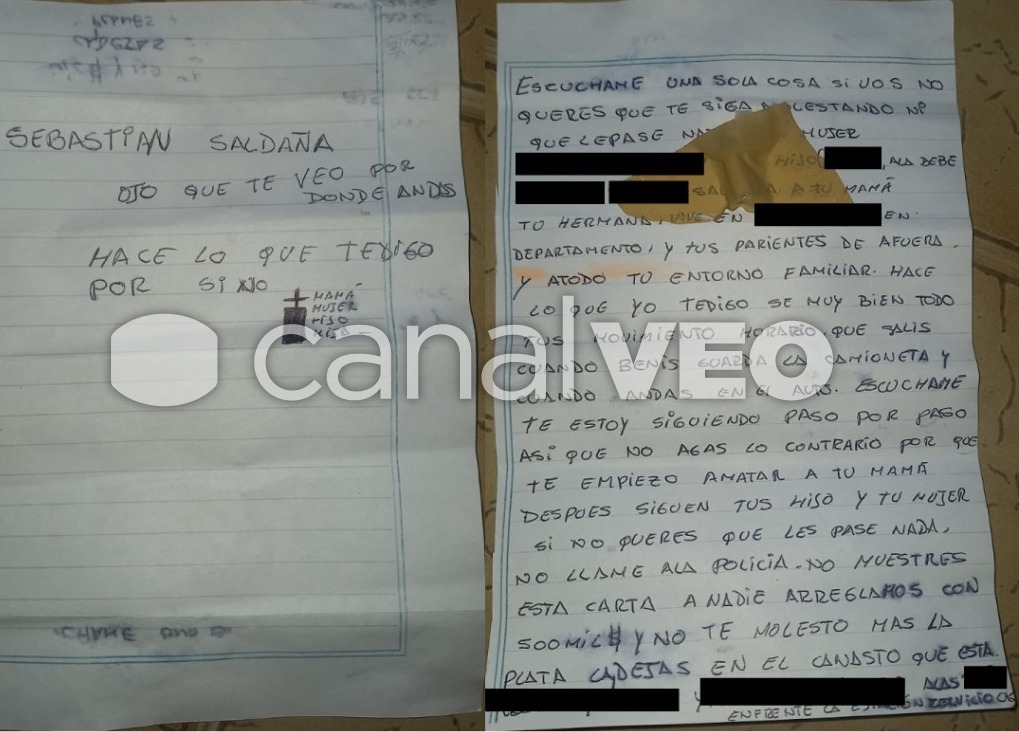 SEBASTIAN SALDAÑA
OJO QUE TE VEO POR
DONDE ANDAS
HACE LO QUE TEDIGO
POR SI NO
MAMÁ
MUJER
HISO
HISA
canalVEO
ESCUCHAME UNA SOLA COSA SI VOS NO
QUERES QUE TE SIGA MOLESTANDO NI
QUE LEPASE MUJER
HISO ALA DEBE
A TU MAMÁ
TU HERMANA, VIVE EN EN
DEPARTAMENTO, Y TUS PARIENTES DE AFUERA.
Y ATODO TU ENTORNO FAMILIAR. HACE
LO QUE YO TEDIGO SE MUY BIEN TODO
TUS MOVIMIENTO HORARIO. QUE SALIS
CUANDO BENIS GUARDA LA CAMIONETA Y
CUANDO ANDAS EN EL AUTO. ESCUCHAME
TE ESTOY SIGUIENDO PASO POR PASO
ASI QUE NO AGAS LO CONTRARIO POR QUE
TE EMPIEZO AMATAR A TU MAMÁ
DESPUES SIGUEN TUS HISO Y TU MUJER
SI NO QUERES QUE LES PASE NADA.
NO LLAME ALA POLICIA. NO MUESTRES
ESTA CARTA A NADIE ARREGLAMOS CON
500MIL$ Y NO TE MOLESTO MAS LA
PLATA LA DEJAS EN EL CANASTO QUE ESTA
Y ALAS
ENFRENTE LA ESTACION SERVICIO